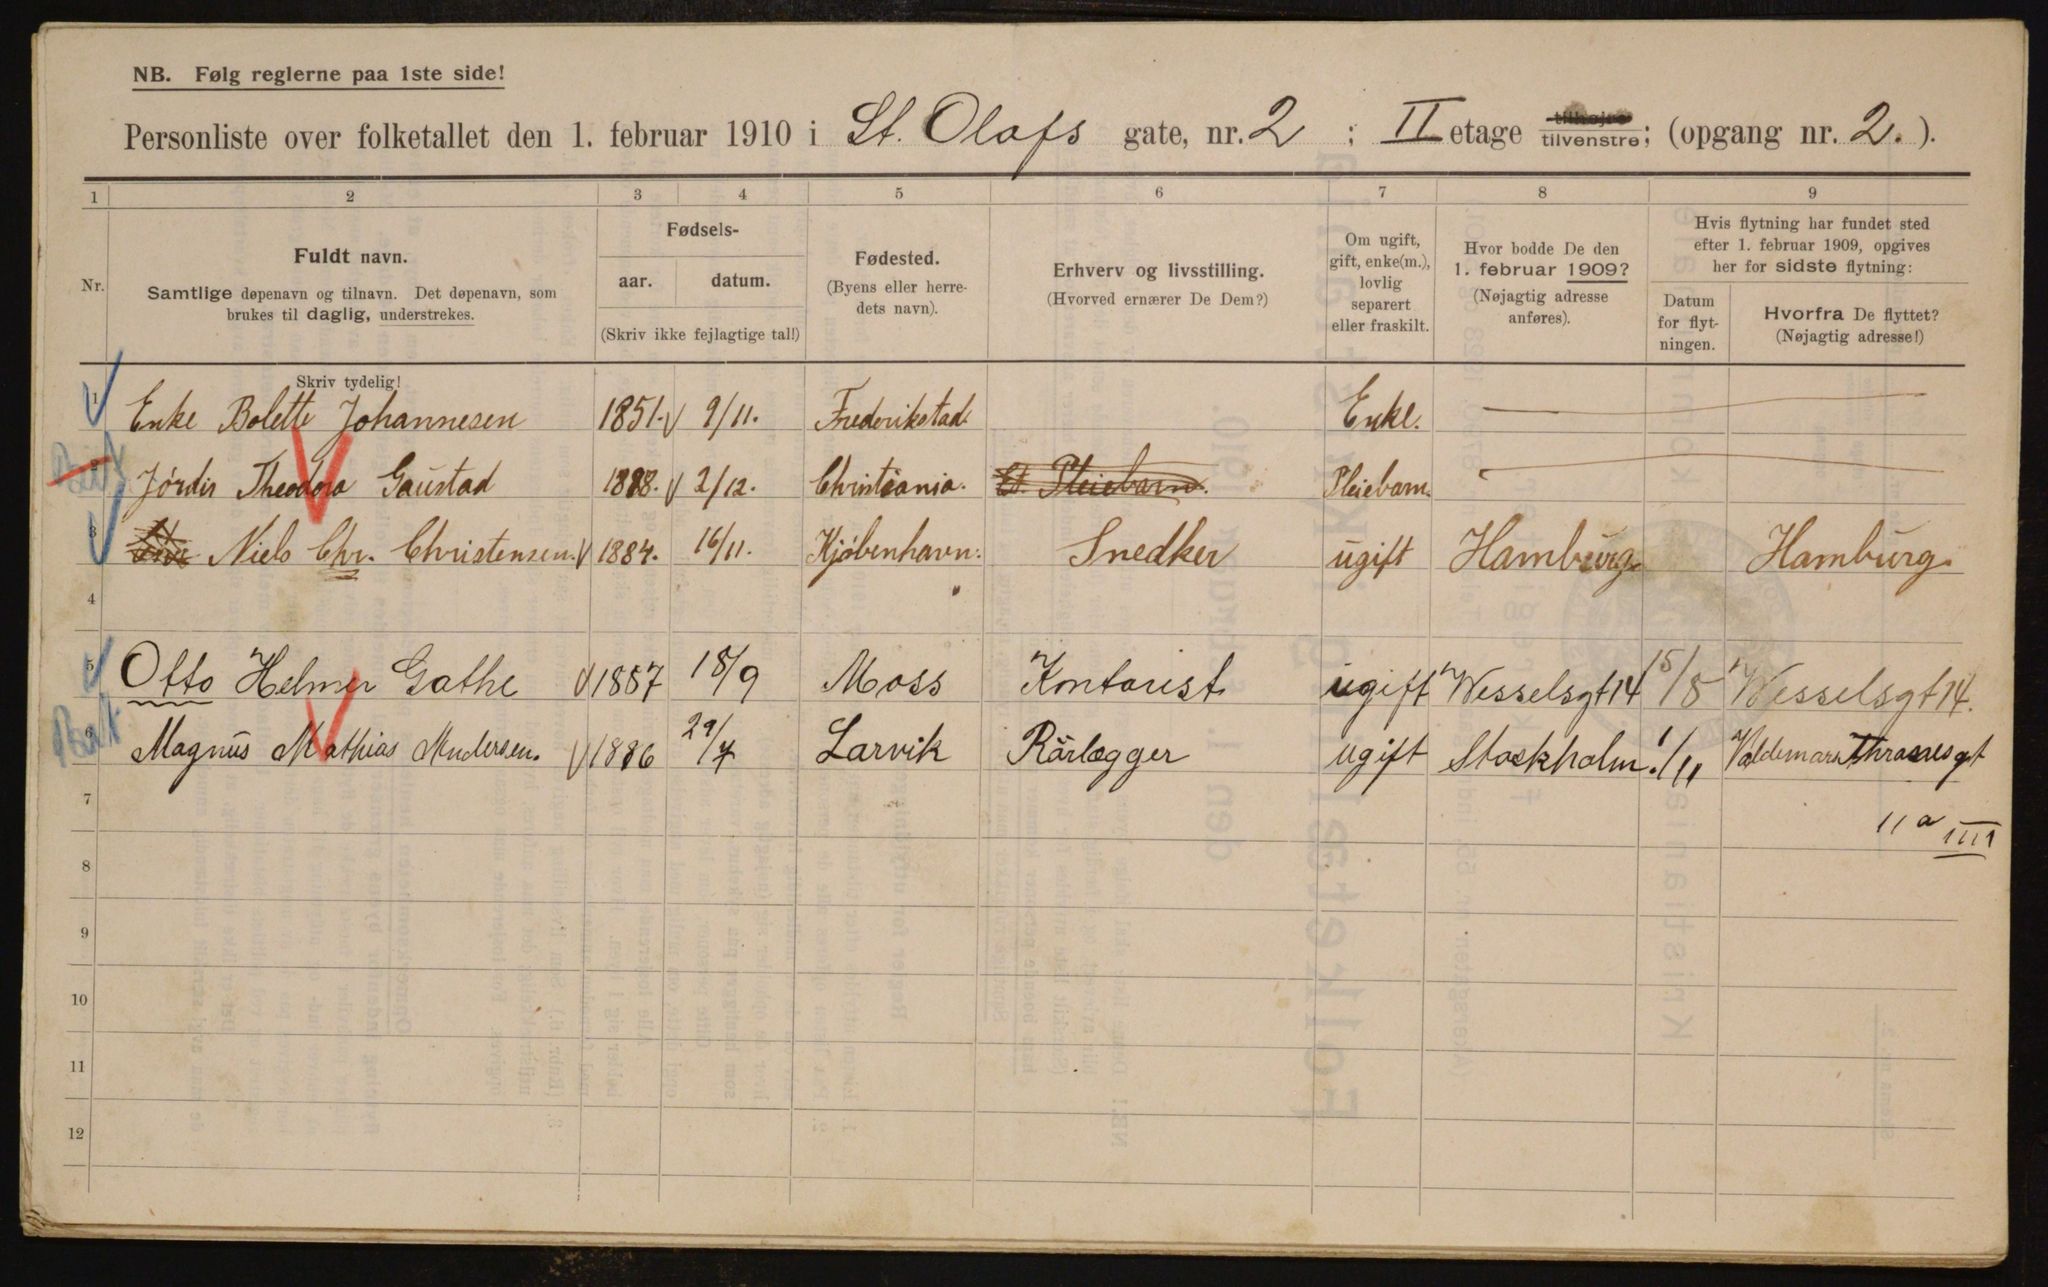 NB. Følg reglerne paa 1ste side!
Personliste over folketallet den 1. februar 1910 i St. Olafs gate, nr. 2 ; II etage tilhøjre tilvenstre; (opgang nr. 2. ).
1 2 3 4 5 6 7 8 9
Nr.
Fuldt navn.
Samtlige døpenavn og tilnavn. Det døpenavn, som
brukes til daglig, understrekes.
Skriv tydelig!
Fødsels-
aar. datum.
(Skriv ikke fejlagtige tal!)
Fødested.
(Byens eller herre-
dets navn).
Erhverv og livsstilling.
(Hvorved ernærer De Dem?)
Om ugift,
gift, enke(m.),
lovlig
separert
eller fraskilt.
Hvor bodde De den
1. februar 1909?
(Nøjagtig adresse
anføres).
Hvis flytning har fundet sted
efter 1. februar 1909, opgives
her for sidste flytning:
Datum
for flyt-
ningen.
Hvorfra De flyttet?
(Nøjagtig adresse!)
1 Enke Bolette Johannesen 1851. 9/11. Frederikstad. Enke.
2 Jórdis Theodora Gaustad 1888. 2/12. Christiania. Pleiebarn. Pleiebarn.
3 Niels Chr. Christensen. 1884. 16/11. Kjøbenhavn. Snedker ugift Hamburg. Hamburg.
4
5 Otto Helmer Gathe 1887 18/9 Moss Kontorist ugift Wesselsgt 14 15/8 Wesselsgt 14.
6 Magnus Mathias Andersen. 1886 29/7 Larvik Rörlægger ugift Stockholm. 1/11 Valdemar Thranesgt
7 11 a III
8
9
10
11
12